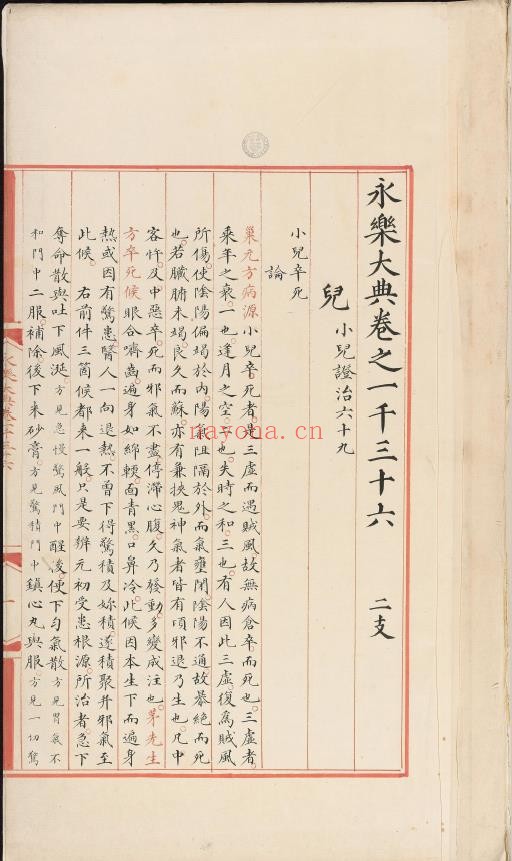 永樂大典卷之一千三十六 二支
兒 小兒證治六十九
小兒卒死
論
巢元方病源小兒卒死者是三虛而遇賊風故無病倉卒而死也三虛者
乘年之衰一也逢月之空二也失時之和三也有人因此三虛復爲賊風
所傷使陰陽偏竭於內陽氣阻隔於外而氣壅閉陰陽不通故暴絕而死
也若臟腑未竭良久而穌亦有兼挾鬼神氣者皆有頃邪退乃生也凡中
客忤及中惡卒死而邪氣不盡停滯心腹久乃發動多變成注也茅先生
方卒死候眼合嚌齒遍身如綿輭面青黑口鼻冷此候因本生下而遍身
熱或因有驚患醫人一向退熱不曾下得驚積及妳積遂積聚并邪氣至
此候右前件三箇候都来一般只是要辨元初受患根源所治者急下
奪命散與吐下風涎方見急慢驚風門中醒後便下勻氣散方見胃氣不
和門中二服補除後下朱砂膏方見驚積門中鎮心丸與服方見一切驚
nayona.cn